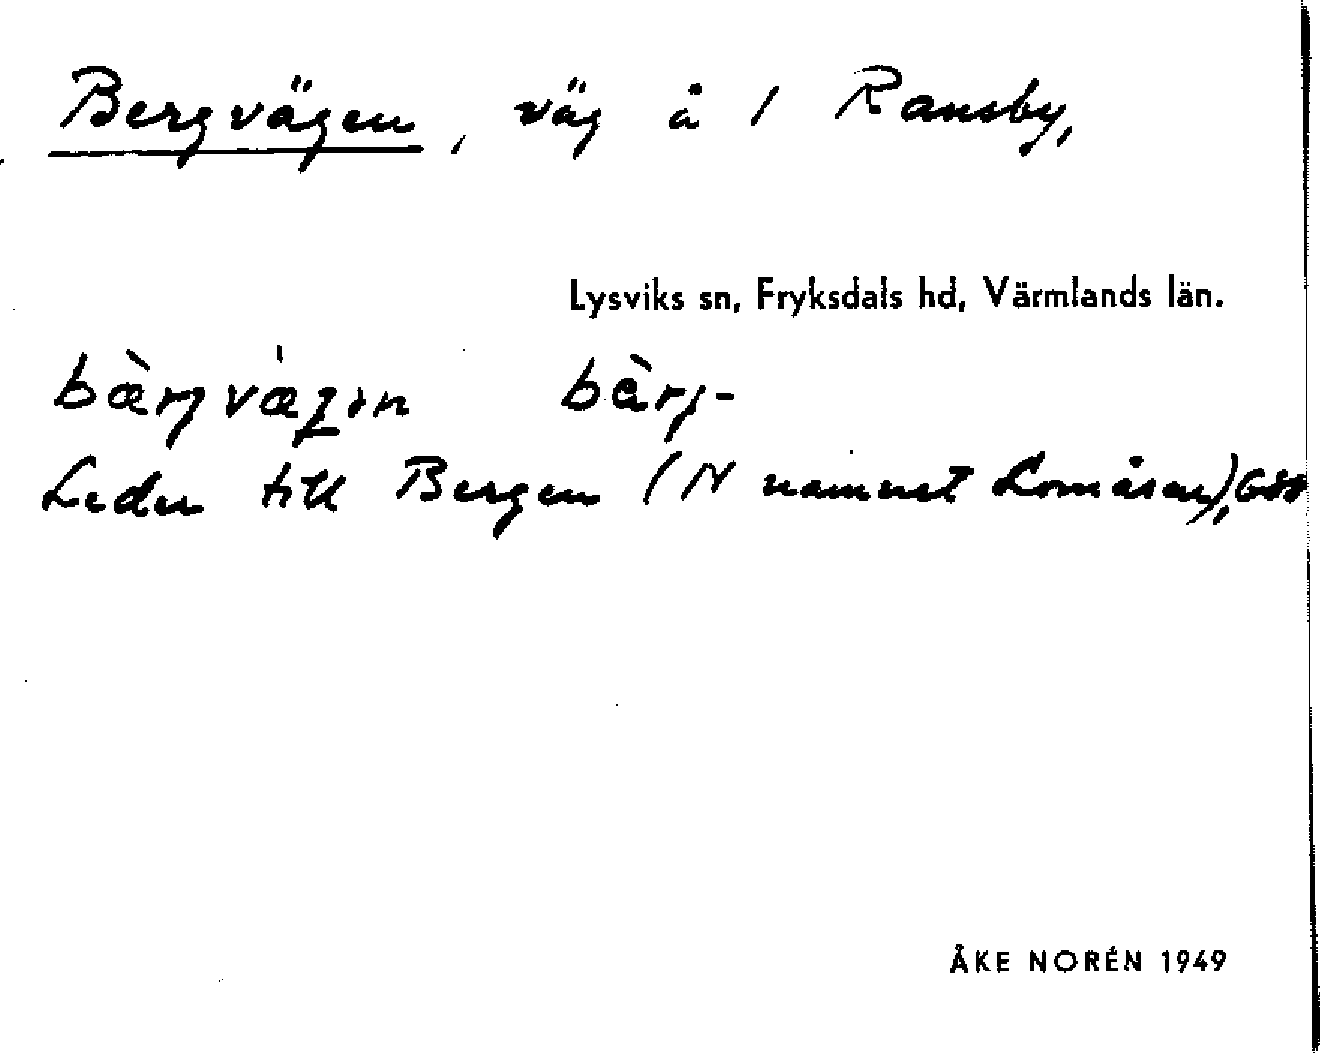 Bergvägen, väg å 1 Ransby,
Lysviks sn, Fryksdals hd, Värmlands län.
bærj vægən bèrj-
Leder till Bergen (N namnet Lomåsen),
ÅKE NORÉN 1949